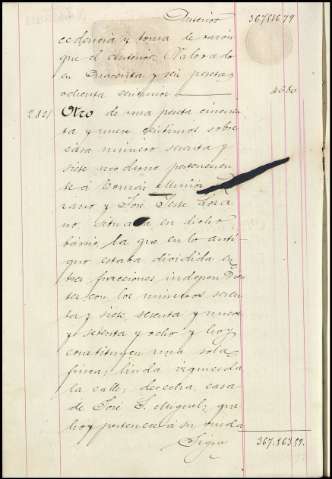 Anterior 367116.79
cedencia y toma de razón
que el anterior. Valorado
en cuarenta y seis pesetas
ochenta centimos 46.80
282/ Otro de una peseta cincuen
ta y nueve centimos sobre
casa número sesenta y
siete moderno pertenecien
te á Tomás Muñoz
zano y José
no situada en dicho
barrio, la que en lo anti-
guo estaba dividida en
tres fracciones independien
tes con los numeros sesen
ta y siete sesenta y nueve
y setenta y ocho y hoy
constituyen una sola
finca; linda izquierda
la calle; derecha casa
de José S. Miguel; que
hoy pertenece á su viuda
Sigue 367.163.59.